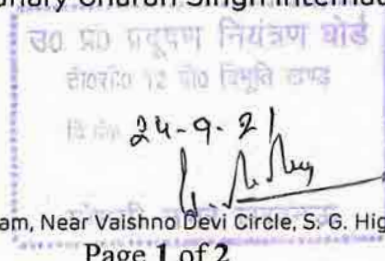 Chaudhary Charan Singh Internat
उ० प्र० प्रदूषण नियंत्रण बोर्ड
टी०सी० 12 वी० विभूति खण्ड
24-9-21
am, Near Vaishno Devi Circle, S. G. Hig
Page 1 of 2